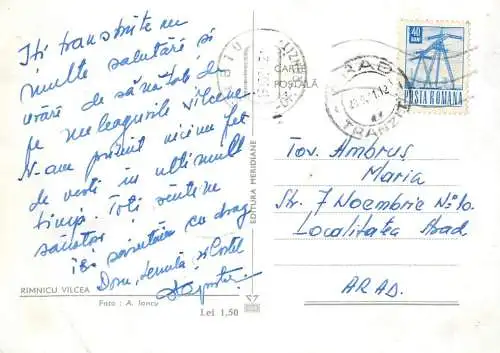 Iți transmitem
multe salutări și
urări de sănătate de
pe meleagurile vîlcene.
N-am primit nici un fel
de vești în ultimul
timp. Toți sîntem
sănătoși
îți sărutăm cu drag
Doru, Lenuța, și Costel
RIMNICU VILCEA
Foto : A. Iancu
Lei 1,50
EDITURA MERIDIANE
CARTE
POSTALĂ
ARAD
TRANZIT
40
BANI
POSTA ROMANA
Tov. Ambruș
Maria
Str. 7 Noembrie Nr. 10
Localitatea Arad
ARAD.